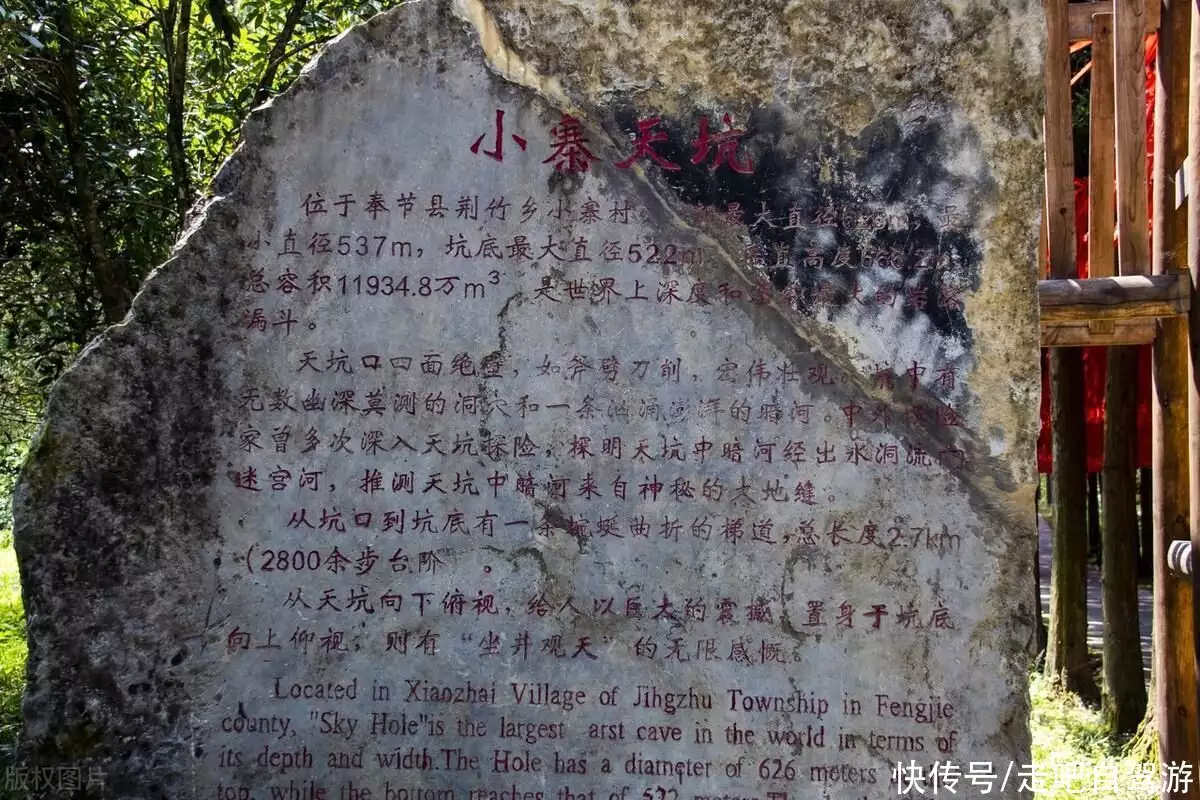 小寨天坑
位于奉节县荆竹乡小寨村。 最大直径
小直径537m，坑底最大直径522m 高度
总容积11934.8万m³ 是世界上深度和
漏斗。
天坑口四面绝壁，如斧劈刀削，宏伟壮观。 中有
无数幽深莫测的洞穴和一条汹涌澎湃的暗河。中外 险
家曾多次深入天坑探险，探明天坑中暗河经出水洞流
迷宫河，推测天坑中暗河来自神秘的大地缝。
从坑口到坑底有一条蜿蜒曲折的梯道，总长度2.7km
（2800余步台阶 。
从天坑向下俯视，给人以巨大的震撼，置身于坑底
向上仰视，则有“坐井观天”的无限感慨。
Located in Xiaozhai Village of Jihgzhu Township in Fengjie
county, "Sky Hole"is the largest arst cave in the world in terms of
its depth and width.The Hole has a diameter of 626 meters
top, while the bottom reaches that of 522
版权图片
快传号/走吧自驾游